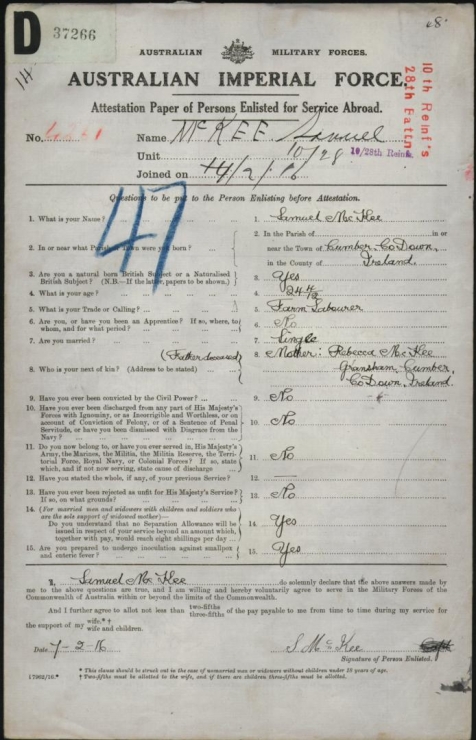 D 37266
14
AUSTRALIAN MILITARY FORCES.
AUSTRALIAN IMPERIAL FORCE.
10th Reinf's
28th Battn
Attestation Paper of Persons Enlisted for Service Abroad.
No. Name McKEE Samuel
Unit 10/28 10/28th Reinfs
Joined on 7/2/16
47
Questions to be put to the Person Enlisting before Attestation.
1. What is your Name? 1. Samuel McKee
2. In or near what Parish or Town were you born? 2. In the Parish of in or
near the Town of Cumber, Co Down,
in the County of Ireland.
3. Are you a natural born British Subject or a Naturalised
British Subject? (N.B.—If the latter, papers to be shown.) 3. Yes
4. What is your age? 4. 24 4/12
5. What is your Trade or Calling? 5. Farm Labourer
6. Are you, or have you been an Apprentice? If so, where, to
whom, and for what period? 6. No
7. Are you married? 7. Single
(Father deceased)
8. Who is your next of kin? (Address to be stated) 8. Mother: Rebecca McKee
Gransham Cumber,
Co Down, Ireland.
9. Have you ever been convicted by the Civil Power? 9. No
10. Have you ever been discharged from any part of His Majesty's
Forces with Ignominy, or as Incorrigible and Worthless, or on
account of Conviction of Felony, or of a Sentence of Penal
Servitude, or have you been dismissed with Disgrace from the
Navy? 10. No
11. Do you now belong to, or have you ever served in, His Majesty's
Army, the Marines, the Militia, the Militia Reserve, the Territorial
Force, Royal Navy, or Colonial Forces? If so, state
which, and if not now serving, state cause of discharge 11. No
12. Have you stated the whole, if any, of your previous Service? 12. —
13. Have you ever been rejected as unfit for His Majesty's Service?
If so, on what grounds? 13. No
14. (For married men and widowers with children and soldiers who
are the sole support of widowed mother)
Do you understand that no Separation Allowance will be
issued in respect of your service beyond an amount which,
together with pay, would reach eight shillings per day 14. Yes
15. Are you prepared to undergo inoculation against smallpox
and enteric fever? 15. Yes
I, Samuel McKee do solemnly declare that the above answers made by
me to the above questions are true, and I am willing and hereby voluntarily agree to serve in the Military Forces of the
Commonwealth of Australia within or beyond the limits of the Commonwealth.
And I further agree to allot not less than two-fifths three-fifths of the pay payable to me from time to time during my service for
the support of my wife.* † wife and children.
Date 7-2-16 S McKee
Signature of Person Enlisted.
17902/10.* * This clause should be struck out in the case of unmarried men or widowers without children under 18 years of age.
† Two-fifths must be allotted to the wife, and if there are children three-fifths must be allotted.